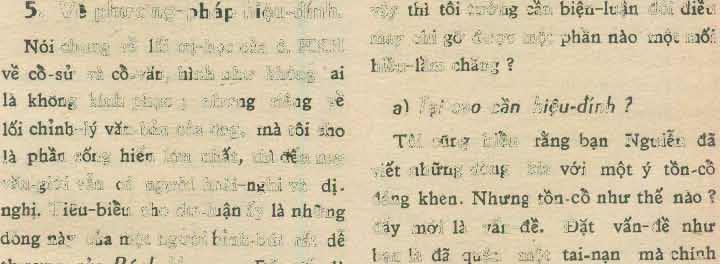 5. Về phương-pháp hiệu-đính.
Nói chung về lối cự-học của ô.
về cổ-sử và cổ-văn, hình như không ai
là không kính phục ; nhưng riêng về
lối chỉnh-lý văn-bản của ông, mà tôi cho
là phần cống hiến lớn nhất, thì đến nay
văn-giới vẫn có người hoài-nghi và dị-
nghị. Tiêu-biểu cho dư-luận ấy là những
dòng này của một người bình-bút rất dễ
vậy thì tôi tưởng cần biện-luận đôi điều
may chi gỡ được một phần nào một mối
hiểu-lầm chăng ?
a) Tại sao cần hiệu-đính ?
Tôi cũng hiểu rằng bạn Nguiễn đã
viết những dòng trên với một ý tồn-cổ
đáng khen. Nhưng tồn-cổ như thế nào ?
đấy mới là vấn đề. Đặt vấn-đề như
bạn là đã quên một tai-nạn mà chính